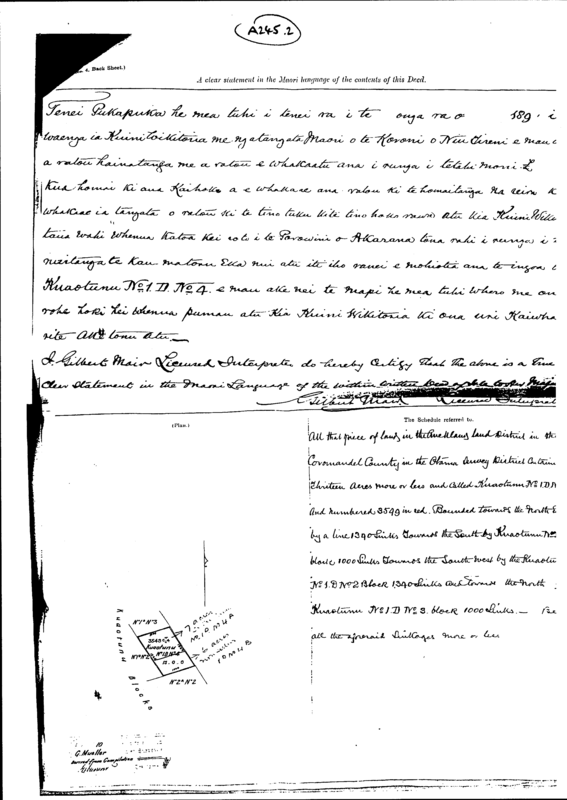 A245.2
4, Back Sheet.)
A clear statement in the Maori language of the contents of this Deed.
Tenei Pukapuka he mea tuhi i tenei ra i te onga ra o 189 i
waenga ia Kuini Wikitoria me ngatangata Maori o te Koroni o Niu Tireni e mau
a ratou hainatanga me a ratou e whakaatu ana i runga i tetahi moni £
Kua homai ki ona Kaihoko a e whakaae ana ratou ki te homaitanga
whakaae ia tangata o ratou ki te tino tuku ki te tino hoko rawa atu kia Kuini Wiki
taua wahi whenua katoa kei roto i te Porowini o Akarana tona rahi i runga i
nuitanga te kau matoru Eka nui atu iti iho ranei e mohiotia ana te ingoa
Kuaotunu No 1. D. No 4. e mau ake nei te mapi he mea tuhi Whero me ona
rohe hoki hei whenua pumau atu kia Kuini Wikitoria ki ona uri Kaiwha
rite Ake tonu atu.
I, Gilbert Mair Licensed Interpreter do hereby Certify that the above is a true
clear Statement in the Maori Language of the within written
Gilbert Mair Licensed Interpreter
(Plan.)
The Schedule referred to.
All that piece of land in the Auckland Land District in the
Coromandel County in the Otama Survey District
Thirteen Acres more or less and called Kuaotunu No 1. D.
and numbered 3549 in red. Bounded towards the North E
by a line 1340 Links Towards the South by Kuaotunu No
block 1000 Links Towards the South West by the Kuaotu
No 1. D No 2 Block 1340 Links and towards the North
Kuaotunu No 1. D No 3. block 1000 Links.
all the aforesaid Linkages more or less
No 1D No 3
Kuaotunu
No 1D No 4
13. 0. 0
No 2A No 2
Kuaotunu Blocks
7 acres
6 acres
G. Mueller